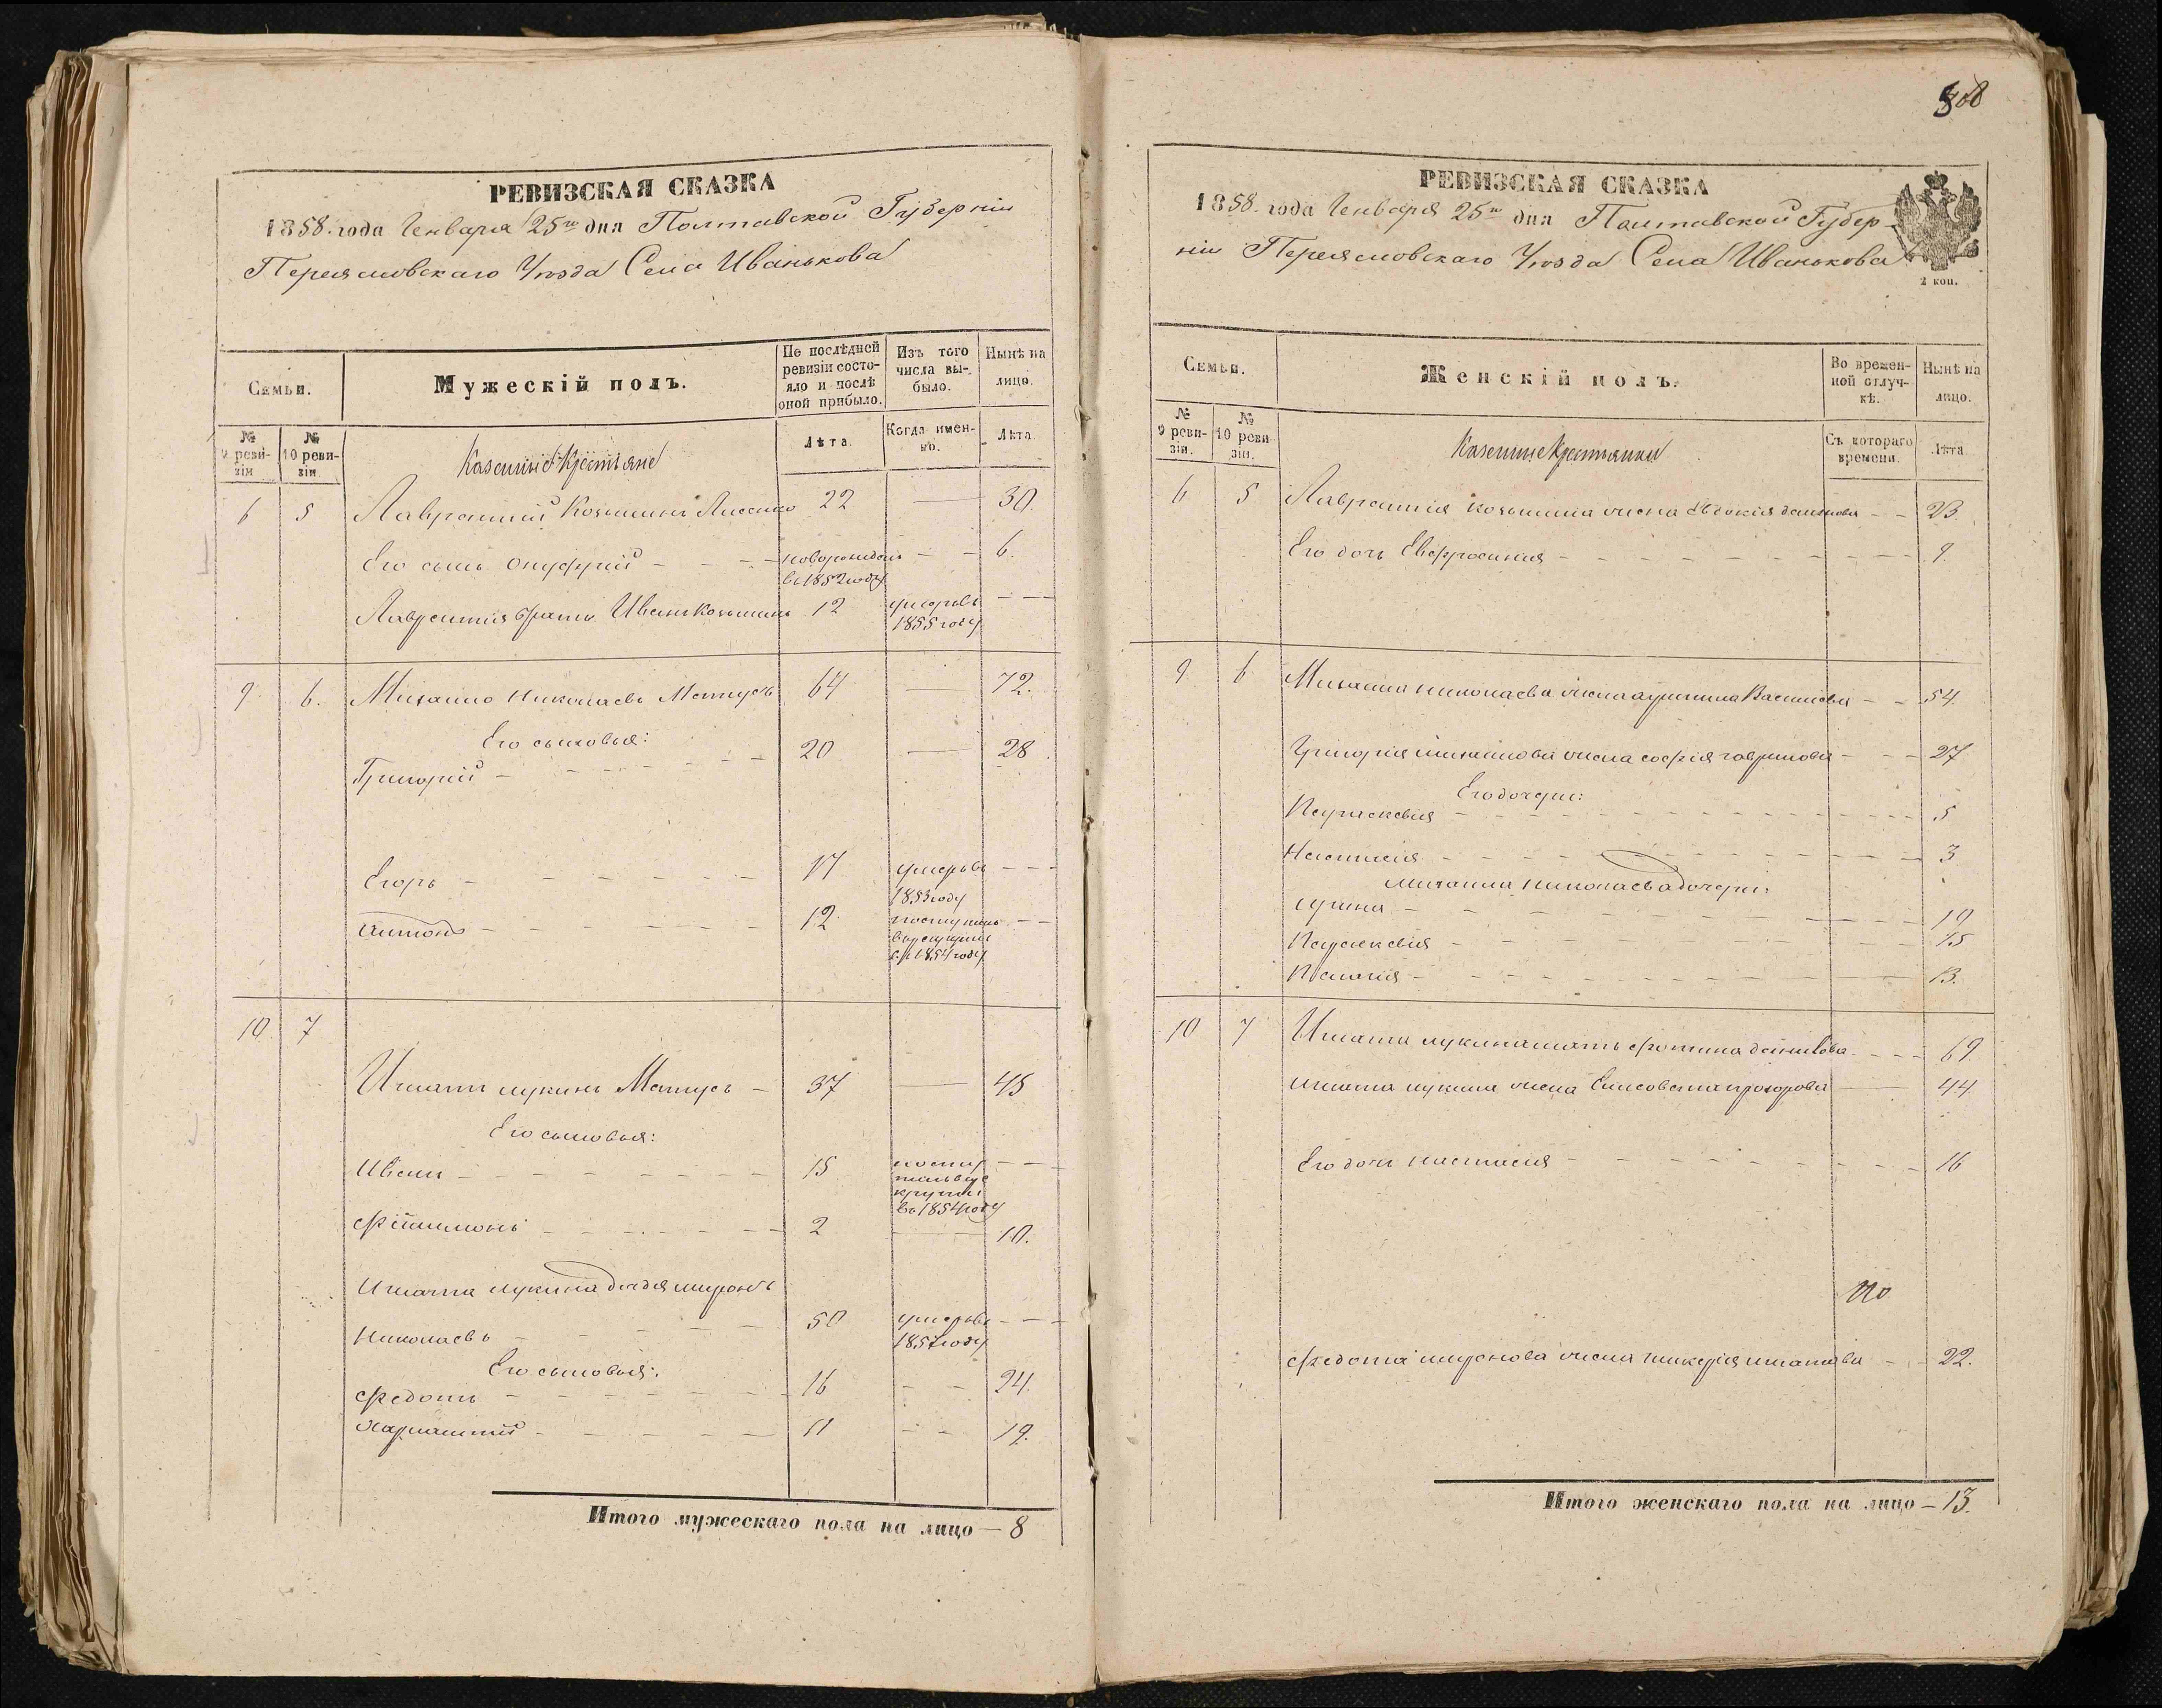 РЕВИЗСКАЯ СКАЗКА
1858 года Генваря 25го дня Полтавской Губерніи
Переясловскаго Уѣзда Села Иванькова
Семьи.
Мужескій полъ.
По послѣдней ревизіи состояло и послѣ оной прибыло.
Изъ того числа выбыло.
Нынѣ на лицо.
№ 9 ревизіи
№ 10 ревизіи
Казенные Крестьяне
Лѣта.
Когда именно.
Лѣта.
6 5 Лаврентій Козьминъ 22 — 30.
Его сынъ Онуфрій — новорожденъ въ 1852 году — 6.
Лаврентія братъ Иванъ Козьминъ 12 умеръ въ 1855 году — —
9. 6. Михайло Николаевъ Матусь 64 — 72.
Его сыновья:
Григорій — 20 — 28
Егоръ — 17 умеръ въ 1853 году — —
Антонъ — 12 поступилъ въ рекруты въ 1854 году — —
10 7
Игнатъ Лукинъ Матусь — 37 — 45
Его сыновья:
Иванъ — 15 въ рекруты въ 1854 году — —
Филимонъ — 2 — 10.
Игната Лукина дядя Миронъ
Николаевъ — 50 умеръ въ 1857 году — —
Его сыновья:
Федотъ — 16 — 24.
Харлампій — 11 — 19.
Итого мужескаго пола на лицо — 8
РЕВИЗСКАЯ СКАЗКА
1858 года Генваря 25го дня Полтавской Губер-
ніи Переясловскаго Уѣзда Села Иванькова
2 коп.
Семьи.
Женскій полъ.
Во временной отлучкѣ.
Нынѣ на лицо.
№ 9 ревизіи.
№ 10 ревизіи.
Казенные Крестьянки
Съ котораго времени.
Лѣта
6 5 Лаврентія Козьмина жена Евдокія — — 23.
Его дочь Евфросинія — 9.
9. 6 Михайла Николаева жена Васильева — — 54.
Григорія Михайлова жена Софія Гаврилова — — 27
Его дочери:
Параскевія — 5
Настасія — 3
Михайла Николаева дочери:
Ирина — 19
Параскевія — 15
Пелагія — 13.
10 7 Игната Лукина мать Фотина Данилова — 69
Игната Лукина жена Елисовета Прохорова — 44
Его дочь Настасія — 16
Федота Миронова жена Гликерія Игнатова — 22.
Итого женскаго пола на лицо — 13.